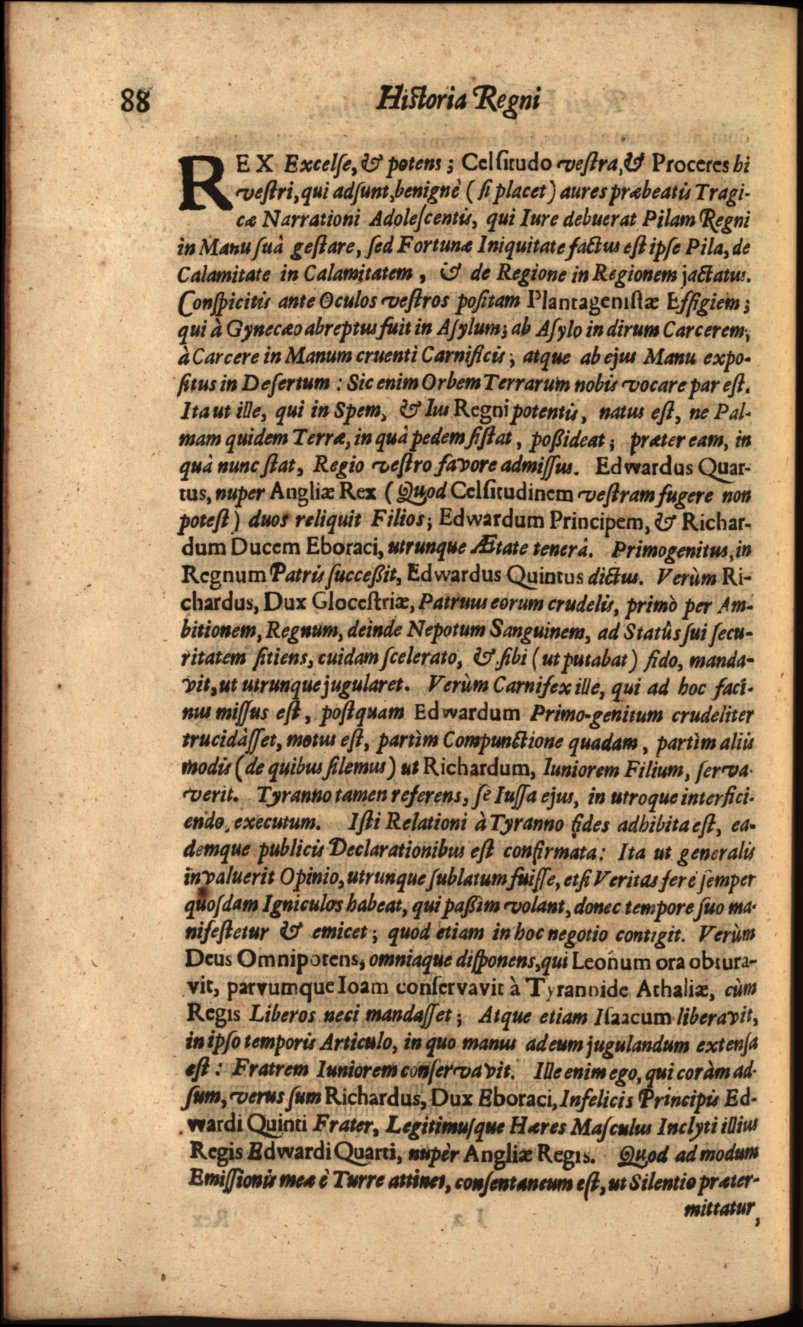 88 Hiſtoria Regni
REX Excelſe, & potens; Celſitudo veſtra, & Proceres hi
veſtri, qui adſunt, benignè (ſi placet) aures præbeatis Tragi-
cæ Narrationi Adoleſcentis, qui Iure debuerat Pilam Regni
in Manu ſuâ geſtare, ſed Fortunæ Iniquitate factus eſt ipſe Pila, de
Calamitate in Calamitatem, & de Regione in Regionem jactatus.
Conſpicitis ante Oculos veſtros poſitam Plantageniſtæ Effigiem;
qui à Gynecæo abreptus fuit in Aſylum; ab Aſylo in dirum Carcerem;
à Carcere in Manum cruenti Carnificis; atque ab ejus Manu expo-
ſitus in Deſertum: Sic enim Orbem Terrarum nobis vocare par eſt.
Ita ut ille, qui in Spem, & Ius Regni potentis, natus eſt, ne Pal-
mam quidem Terræ, in quâ pedem ſiſtat, poßideat; præter eam, in
quâ nunc ſtat, Regio veſtro favore admiſſus. Edwardus Quar-
tus, nuper Angliæ Rex (Quod Celſitudinem veſtram fugere non
poteſt) duos reliquit Filios; Edwardum Principem, & Richar-
dum Ducem Eboraci, utrunque Ætate tenerâ. Primogenitus, in
Regnum Patris ſucceßit, Edwardus Quintus dictus. Verùm Ri-
chardus, Dux Gloceſtriæ, Patruus eorum crudelis, primò per Am-
bitionem, Regnum, deìnde Nepotum Sanguinem, ad Statûs ſui ſecu-
ritatem ſitiens, cuidam ſcelerato, & ſibi (ut putabat) fido, manda-
vit, ut utrunque jugularet. Verùm Carnifex ille, qui ad hoc faci-
nus miſſus eſt, poſtquam Edwardum Primo-genitum crudeliter
trucidâſſet, motus eſt, partìm Compunctione quadam, partìm aliis
modis (de quibus ſilemus) ut Richardum, Iuniorem Filium, ſerva-
verit. Tyranno tamen referens, ſe Iuſſa ejus, in utroque interfici-
endo, executum. Iſti Relationi à Tyranno fides adhibita eſt, ea-
demque publicis Declarationibus eſt confirmata: Ita ut generalis
invaluerit Opinio, utrunque ſublatum fuiſſe, etſi Veritas ferè ſemper
quoſdam Igniculos habeat, qui paßìm volant, donec tempore ſuo ma-
nifeſtetur & emicet; quod etiam in hoc negotio contigit. Verùm
Deus Omnipotens, omniaque diſponens, qui Leonum ora obtura-
vit, parvumque Ioam conſervavit à Tyrannide Athaliæ, cùm
Regis Liberos neci mandaſſet; Atque etiam Iſaacum liberavit,
in ipſo temporis Articulo, in quo manus ad eum jugulandum extenſa
eſt: Fratrem Iuniorem conſervavit. Ille enim ego, qui coràm ad-
ſum, verus ſum Richardus, Dux Eboraci, Infelicis Principis Ed-
wardi Quinti Frater, Legitimuſque Hæres Maſculus Inclyti illius
Regis Edwardi Quarti, nupèr Angliæ Regis. Quod ad modum
Emiſſionis meæ è Turre attinet, conſentaneum eſt, ut Silentio præter-
mittatur,